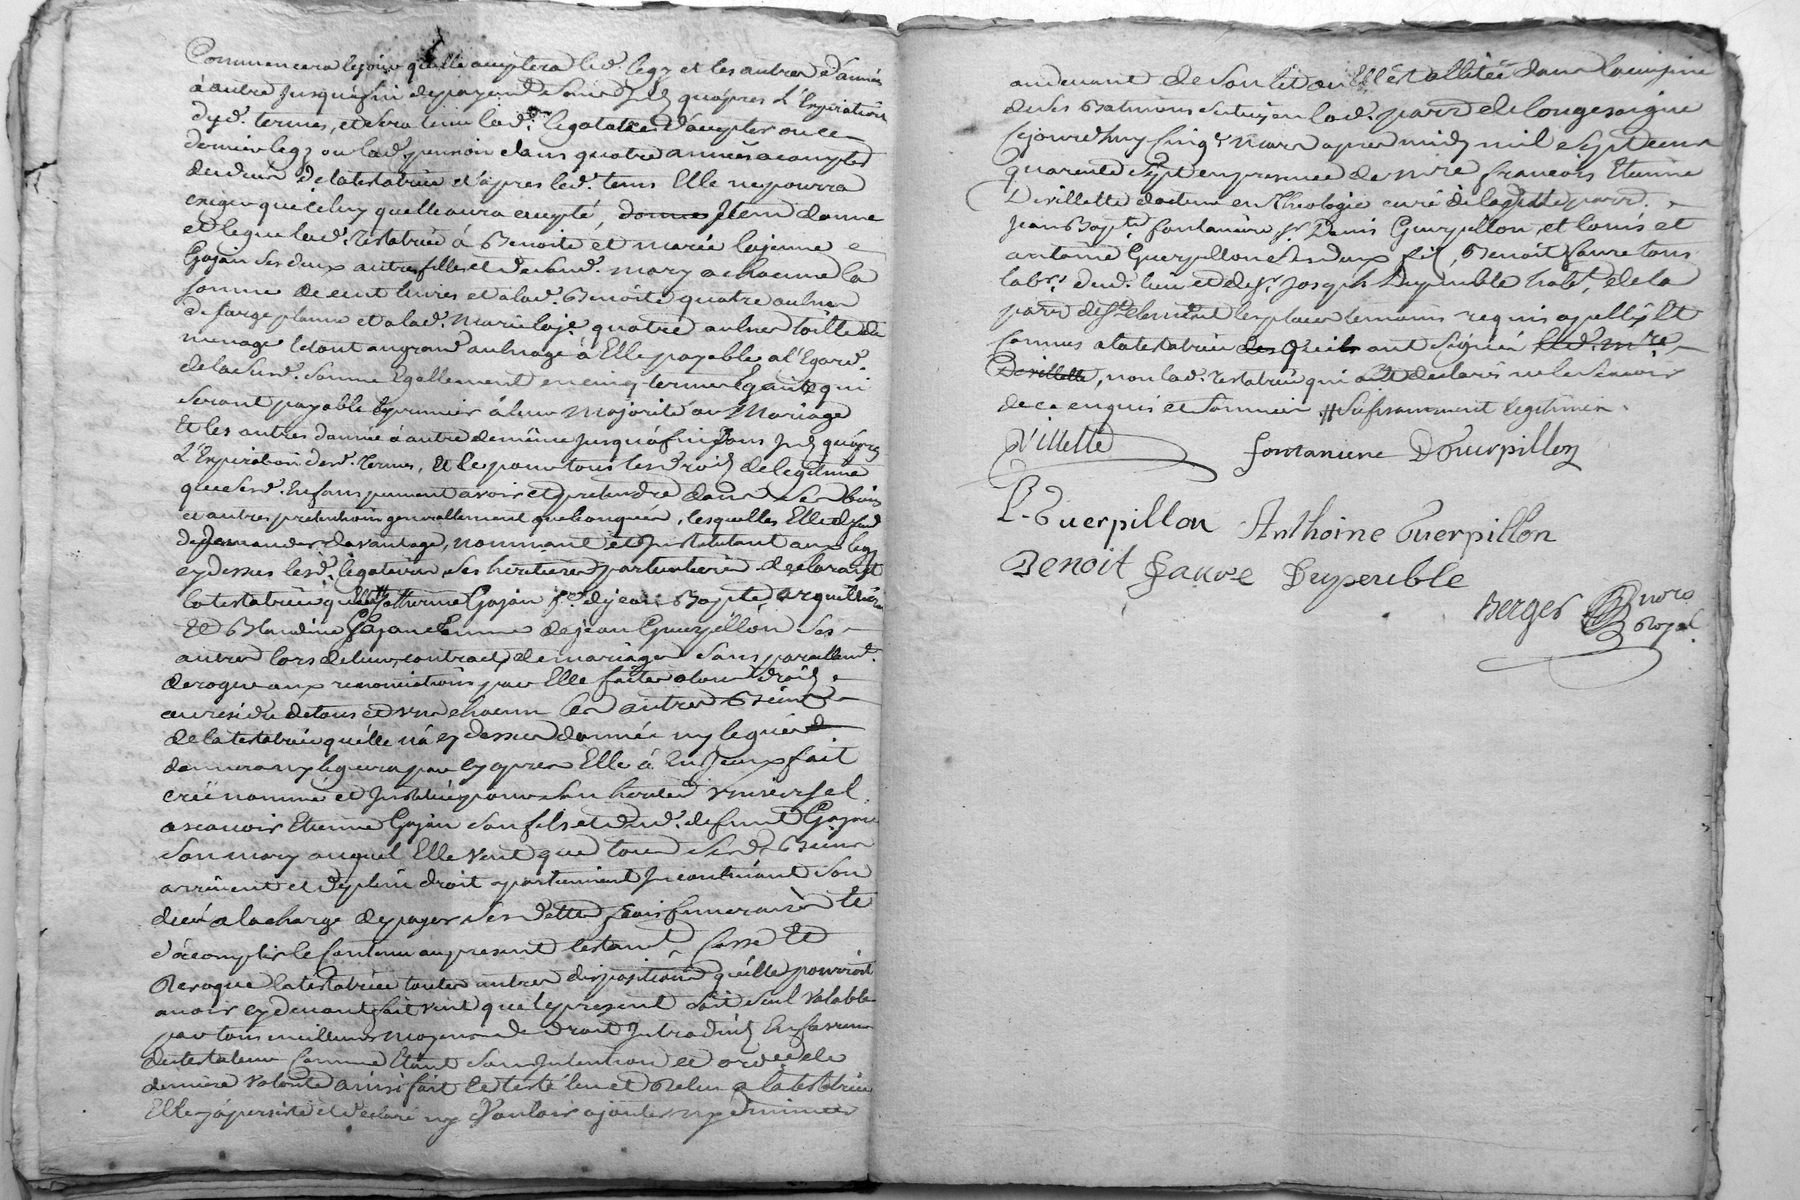 Commencera le jour quelle acceptera led. legz et les autres d'année
à autre jusquafin de payement sans Intz quapres L'Expiration
dud. termes, et sera tenue lad. legatatrice d'accepter ou ce
dernier legz ou lad. pension dans quatre années a compter
du deces de la testatrice et apres led. tems Elle ne pourra
exiger que celuy quelle aura accepté, donne Item donne
et legue lad. Testatrice à Benoite et marie lajeune
Gojon ses deux autres filles et dudud. mary a chacune la
somme de cent livres et a lad. Benoite quatre aulnes
de sarge planne et a lad. Marie laje. quatre aulnes toille de
menage le tout au grand aulnage à Elle payable a l'Egard
de lasusd. somme Egallement en cinq termes Egaux qui
seront payable le premier à leur Majorité ou Mariage
Et les autres d'année à autre de même jusquàfin sans Intz quâpres
L'Expiration desd. termes, Et ce pour tous les droits de legitime
que sesd. Enfans peuvent avoir et pretendre dans ses biens
et autres pretentions generallement quelconques, lesquelles Elle
de demander davantage, nommant et Instituant aux legz
cy dessus lesd. legataires ses heritiers particuliers declarant
la testatrice que Catherine Gojon fe. de jean Bapte arquilliere
Et Blandine Gojon femme de jean Guerpillon ses
autres lors de leurs contracts de mariage sans parellemt.
deroger aux renonciations par Elle faites a leurs droits
au residu de tous et un chacun les autres Biens
de la testatrice quelle n'à cy dessus donnés ny legués
donnera ny leguera par cy apres Elle à Inst. fait
créé nommé et Institué pour son heritier universel
ascavoir Etienne Gojon son fils et dud. defunt Gojon
son mary auquel Elle veut que tous sesd. Biens
arrivent et de plein droit apartiennent Incontinant son
deces a la charge de payer ses dettes frais funeraires et
d'accomplir le contenu au present testamt. Casse Et
Revoque la testatrice toutes autres dispositions quelle pourroit
avoir cy devant fait veut que le present soit seul valable
par tous meilleurs moyens de droit Introduits En faveur
des testateurs Comme Etant son Intention et ordce de
derniere volonté ainsi fait et testé leu et Relu a la testatrice
Elle y à persisté et déclaré ny Vouloir ajouter ny diminuer
au devant de son lit ou Elle est allitée dans la cuisine
de ses Batimens scituées en lad. parr de longesaigne
Cejourdhuy cinqe Mars apres midy mil sept cent
quarente sept en presence de mre françois Etienne
Devillette docteur en Theologie curé de ladite parr.
Jean Bapte fontaniere sr Denis Guerpillon, et louis et
antoine Guerpillon ses deux fils, Benoit faure tous
labrs. dud. lieu et de sr. joseph Dupeuble habt. de la
parr de st clement les places temoins requis apellés Et
connus a la testatrice qui ont signés led. mre
Devillette, non lad. Testatrice qui a declaré ne le scavoir
de ce enquis et sommée # sufisamment legitimée.
D'illette fontaniere D Guerpillon
L. Guerpillon Anthoine Guerpillon
Benoit faure Dupeuble
Berger nore
Royal